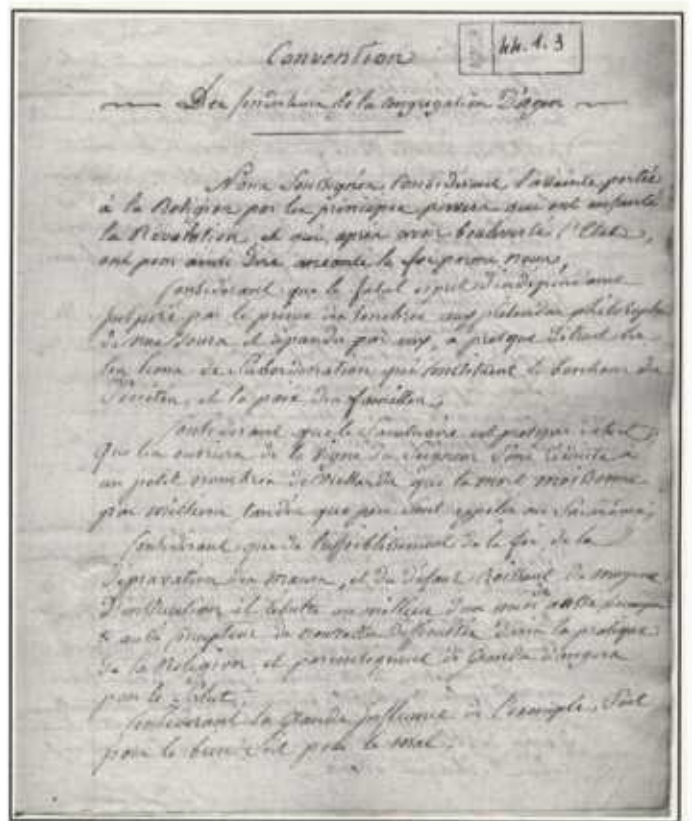 44.1.3
Convention
Des fondateurs de la congrégation D'agen
Nous Soussignés, Considérant l'atteinte portée
à la Religion par les principes pervers qui ont enfanté
la Révolution, et qui, après avoir bouleversé l'Etat,
ont pour ainsi dire anéanti la foi parmi nous,
Considérant que le fatal esprit d'indépendance
par le prince des tenebres aux prétendus philosophes
de nos Jours et répandu par eux, a presque détruit les
liens de Subordination qui constituent le bonheur des
Sociétés, et la paix des familles,
Considérant que le Sanctuaire est presque
Que les ouvriers de la Vigne du Seigneur Sont réduits à
un petit nombre de Vieillards que la mort moissonne
par milliers, tandis que peu sont appelés au Sacerdoce,
Considérant que de l'affoiblissement de la foi, de la
dépravation des mœurs, et du défaut de moyens
D'instruction il résulte au milieu d'un
de nouvelles difficultés dans la pratique
de la Religion, et par conséquent de Grands dangers
pour le Salut,
Considérant la Grande influence de l'exemple, Soit
pour le bien Soit pour le mal,